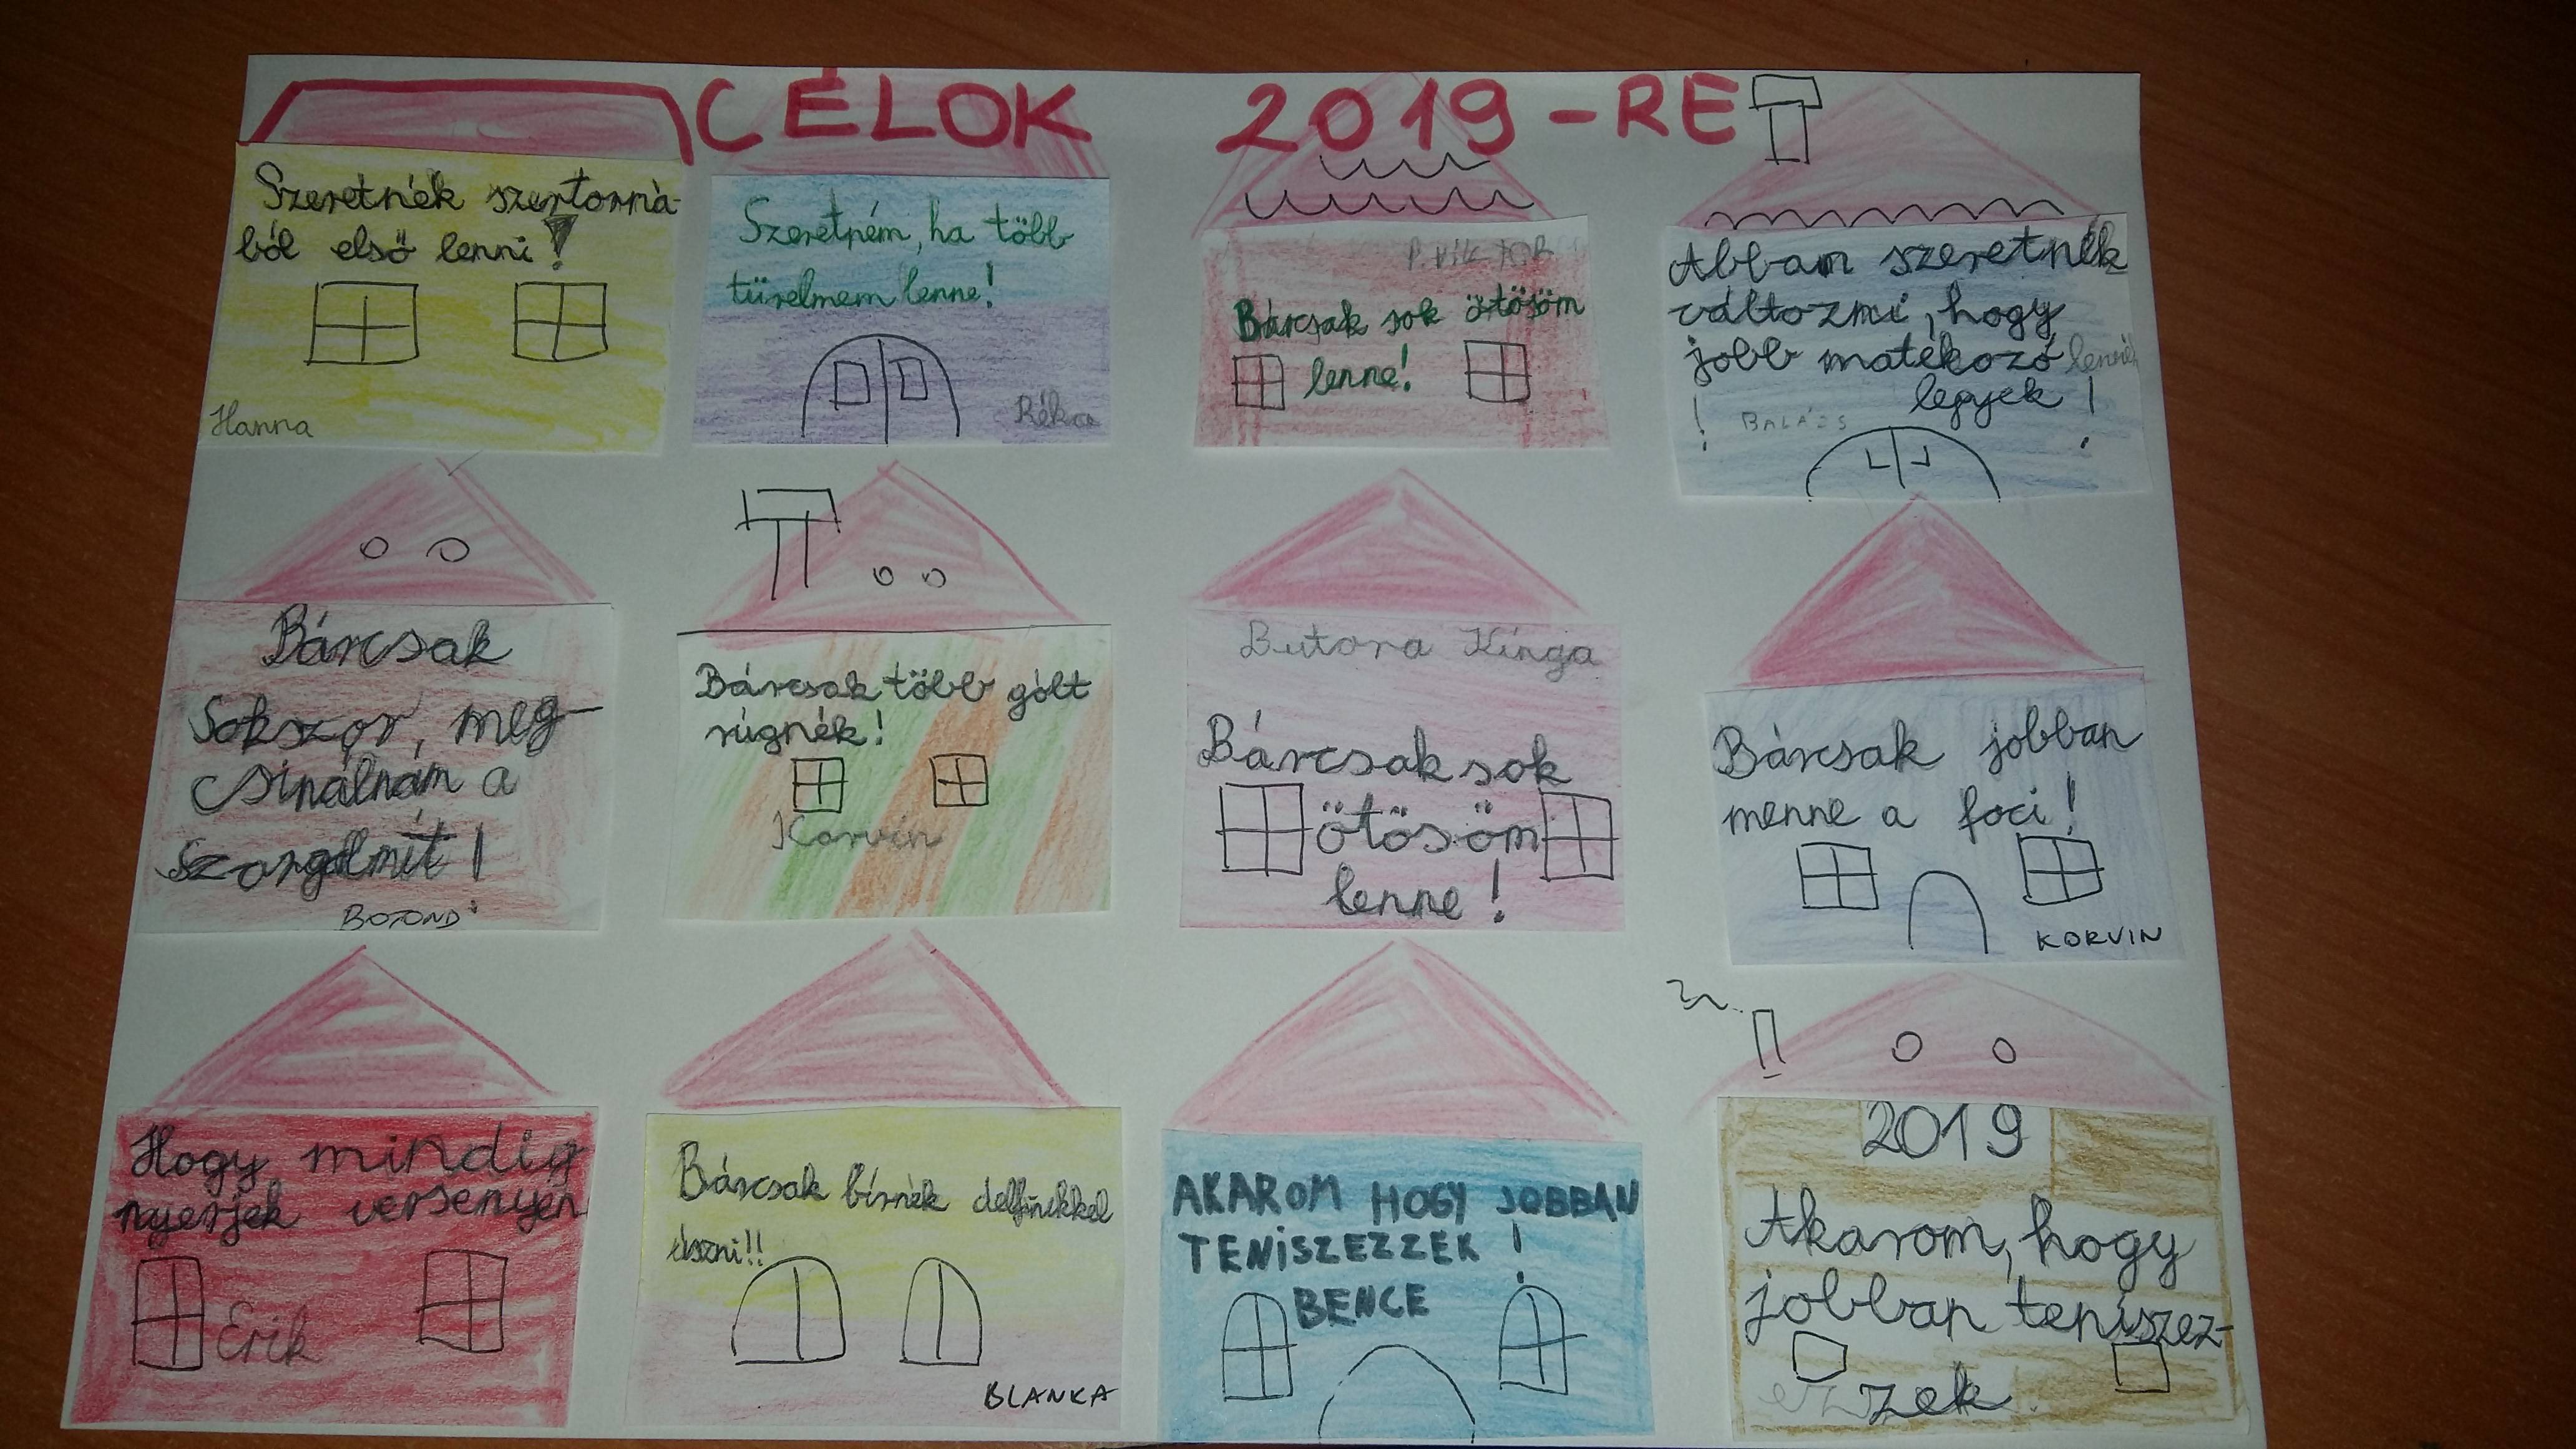 CÉLOK 2019-RE
Szeretnék szertorna-
ból első lenni!
Hanna
Szeretném, ha több
türelmem lenne!
Réka
P. VIKTOR
Bárcsak sok ötösöm
lenne!
Abban szeretnék
változni, hogy
jobb matekozó
legyek!
BALÁZS
Bárcsak
sokszor, meg-
csinálnám a
szorgalmit!
BOTOND
Bárcsak több gólt
rúgnék!
Korvin
Butora Kinga
Bárcsak sok
ötösöm
lenne!
Bárcsak jobban
menne a foci!
KORVIN
Hogy mindig
nyerjek versenyen
Erik
Bárcsak bírnék delfinekkel
úszni!!
BLANKA
AKAROM HOGY JOBBAN
TENISZEZZEK !
BENCE
2019
Akarom, hogy
jobban teniszez-
zek.